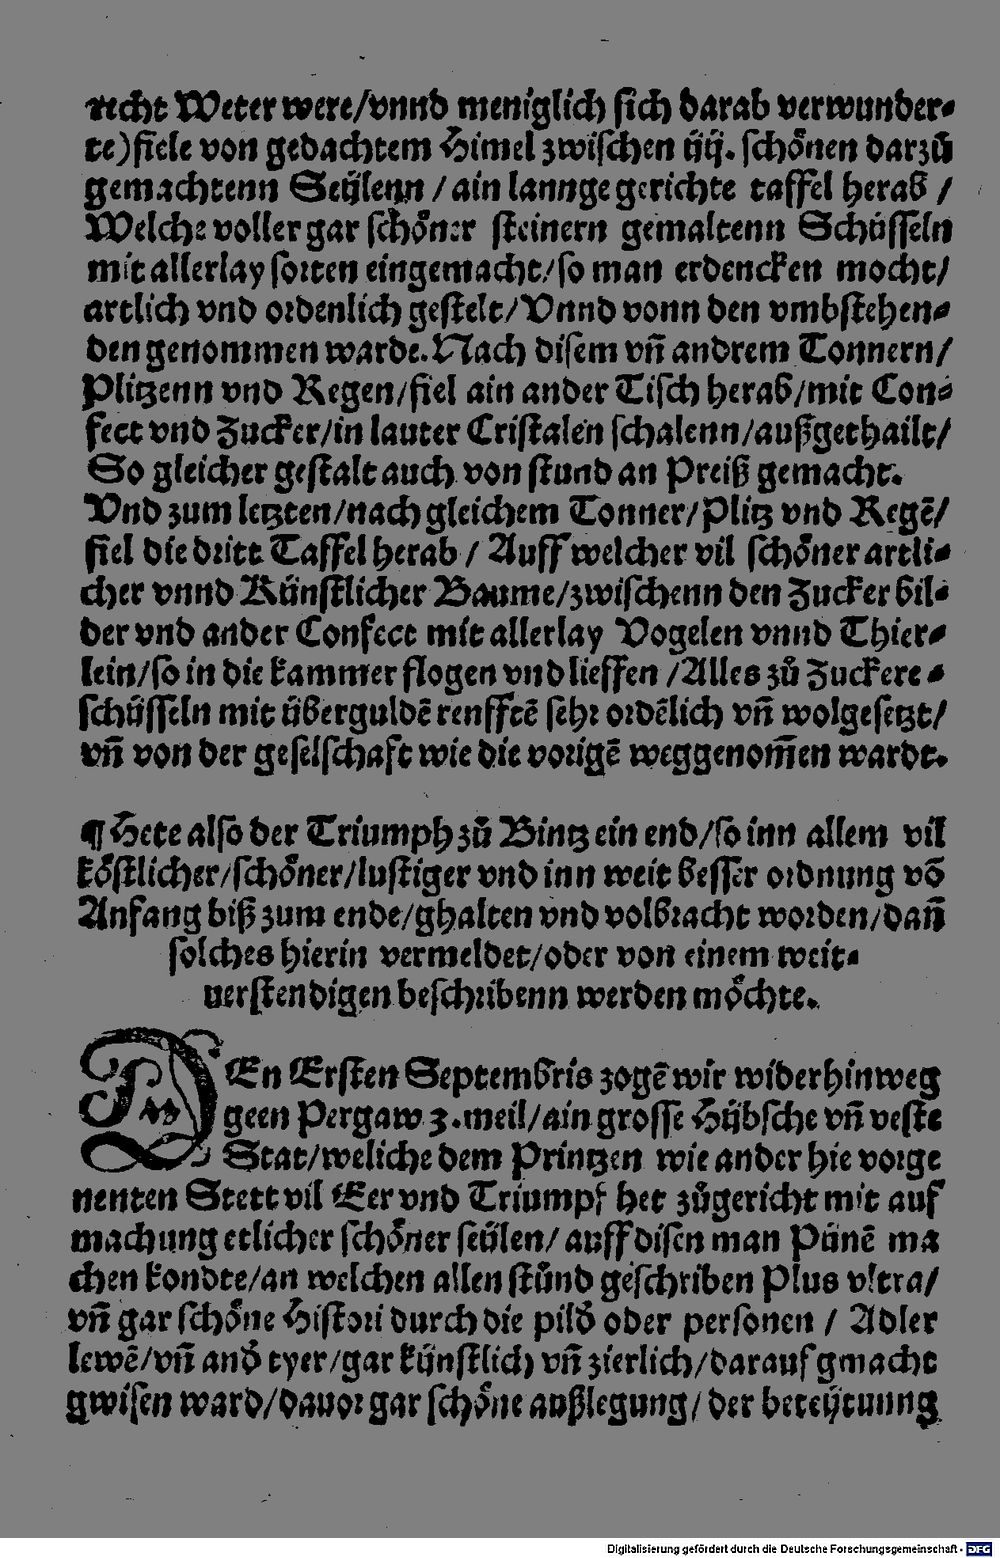 recht Weter were/vnnd meniglich sich darab verwunder⸗
te)fiele von gedachtem Himel zwischen iiij. schoͤnen darzuͦ
gemachtenn Seülenn / ain lannge gerichte taffel herab /
Welche voller gar schoͤner steinern gemaltenn Schüsseln
mit allerlay sorten eingemacht/so man erdencken mocht/
artlich vnd ordenlich gestelt/Vnnd vonn den vmbstehen⸗
den genommen warde. Nach disem vñ andrem Tonnern/
Plitzenn vnd Regen/fiel ain ander Tisch herab/mit Con⸗
fect vnd Zucker/in lauter Cristalen schalenn/außgethailt/
So gleicher gestalt auch von stund an Preiß gemacht.
Vnd zum letzten/nach gleichem Tonner/Plitz vnd Regē/
fiel die dritt Taffel herab / Auff welcher vil schoͤner artli⸗
cher vnnd Künstlicher Baume/zwischenn den Zucker bil⸗
der vnd ander Confect mit allerlay Vogelen vnnd Thier⸗
lein/so in die kammer flogen vnd lieffen /Alles zuͦ Zuckere⸗
schüsseln mit überguldē renfftē sehr ordēlich vñ wolgesetzt/
vñ von der geselschaft wie die vorigē weggenom̄en wardt.
¶ Hete also der Triumph zuͦ Bintz ein end/so inn allem vil
koͤstlicher/schoͤner/lustiger vnd inn weit besser ordnung vō
Anfang biß zum ende/ghalten vnd volbracht worden/dañ
solches hierin vermeldet/oder von einem weit⸗
uerstendigen beschribenn werden moͤchte.
DEn Ersten Septembris zogē wir widerhinweg
geen Pergaw 3.meil/ain grosse Hübsche vñ veste
Stat/weliche dem Printzen wie ander hie vorge
nenten Stett vil Eer vnd Triumpf het zuͦgericht mit auf
machung etlicher schoͤner seülen/ auff disen man Pünē ma
chen kondte/an welchen allen stuͦnd geschriben Plus vltra/
vñ gar schoͤne Histori durch die pild oder personen / Adler
lewē/vñ and tyer/gar künstlich vñ zierlich/darauf gmacht
gwisen ward/dauor gar schoͤne außlegung/der beteütunng
Digitalisierung gefördert durch die Deutsche Forschungsgemeinschaft - DFG